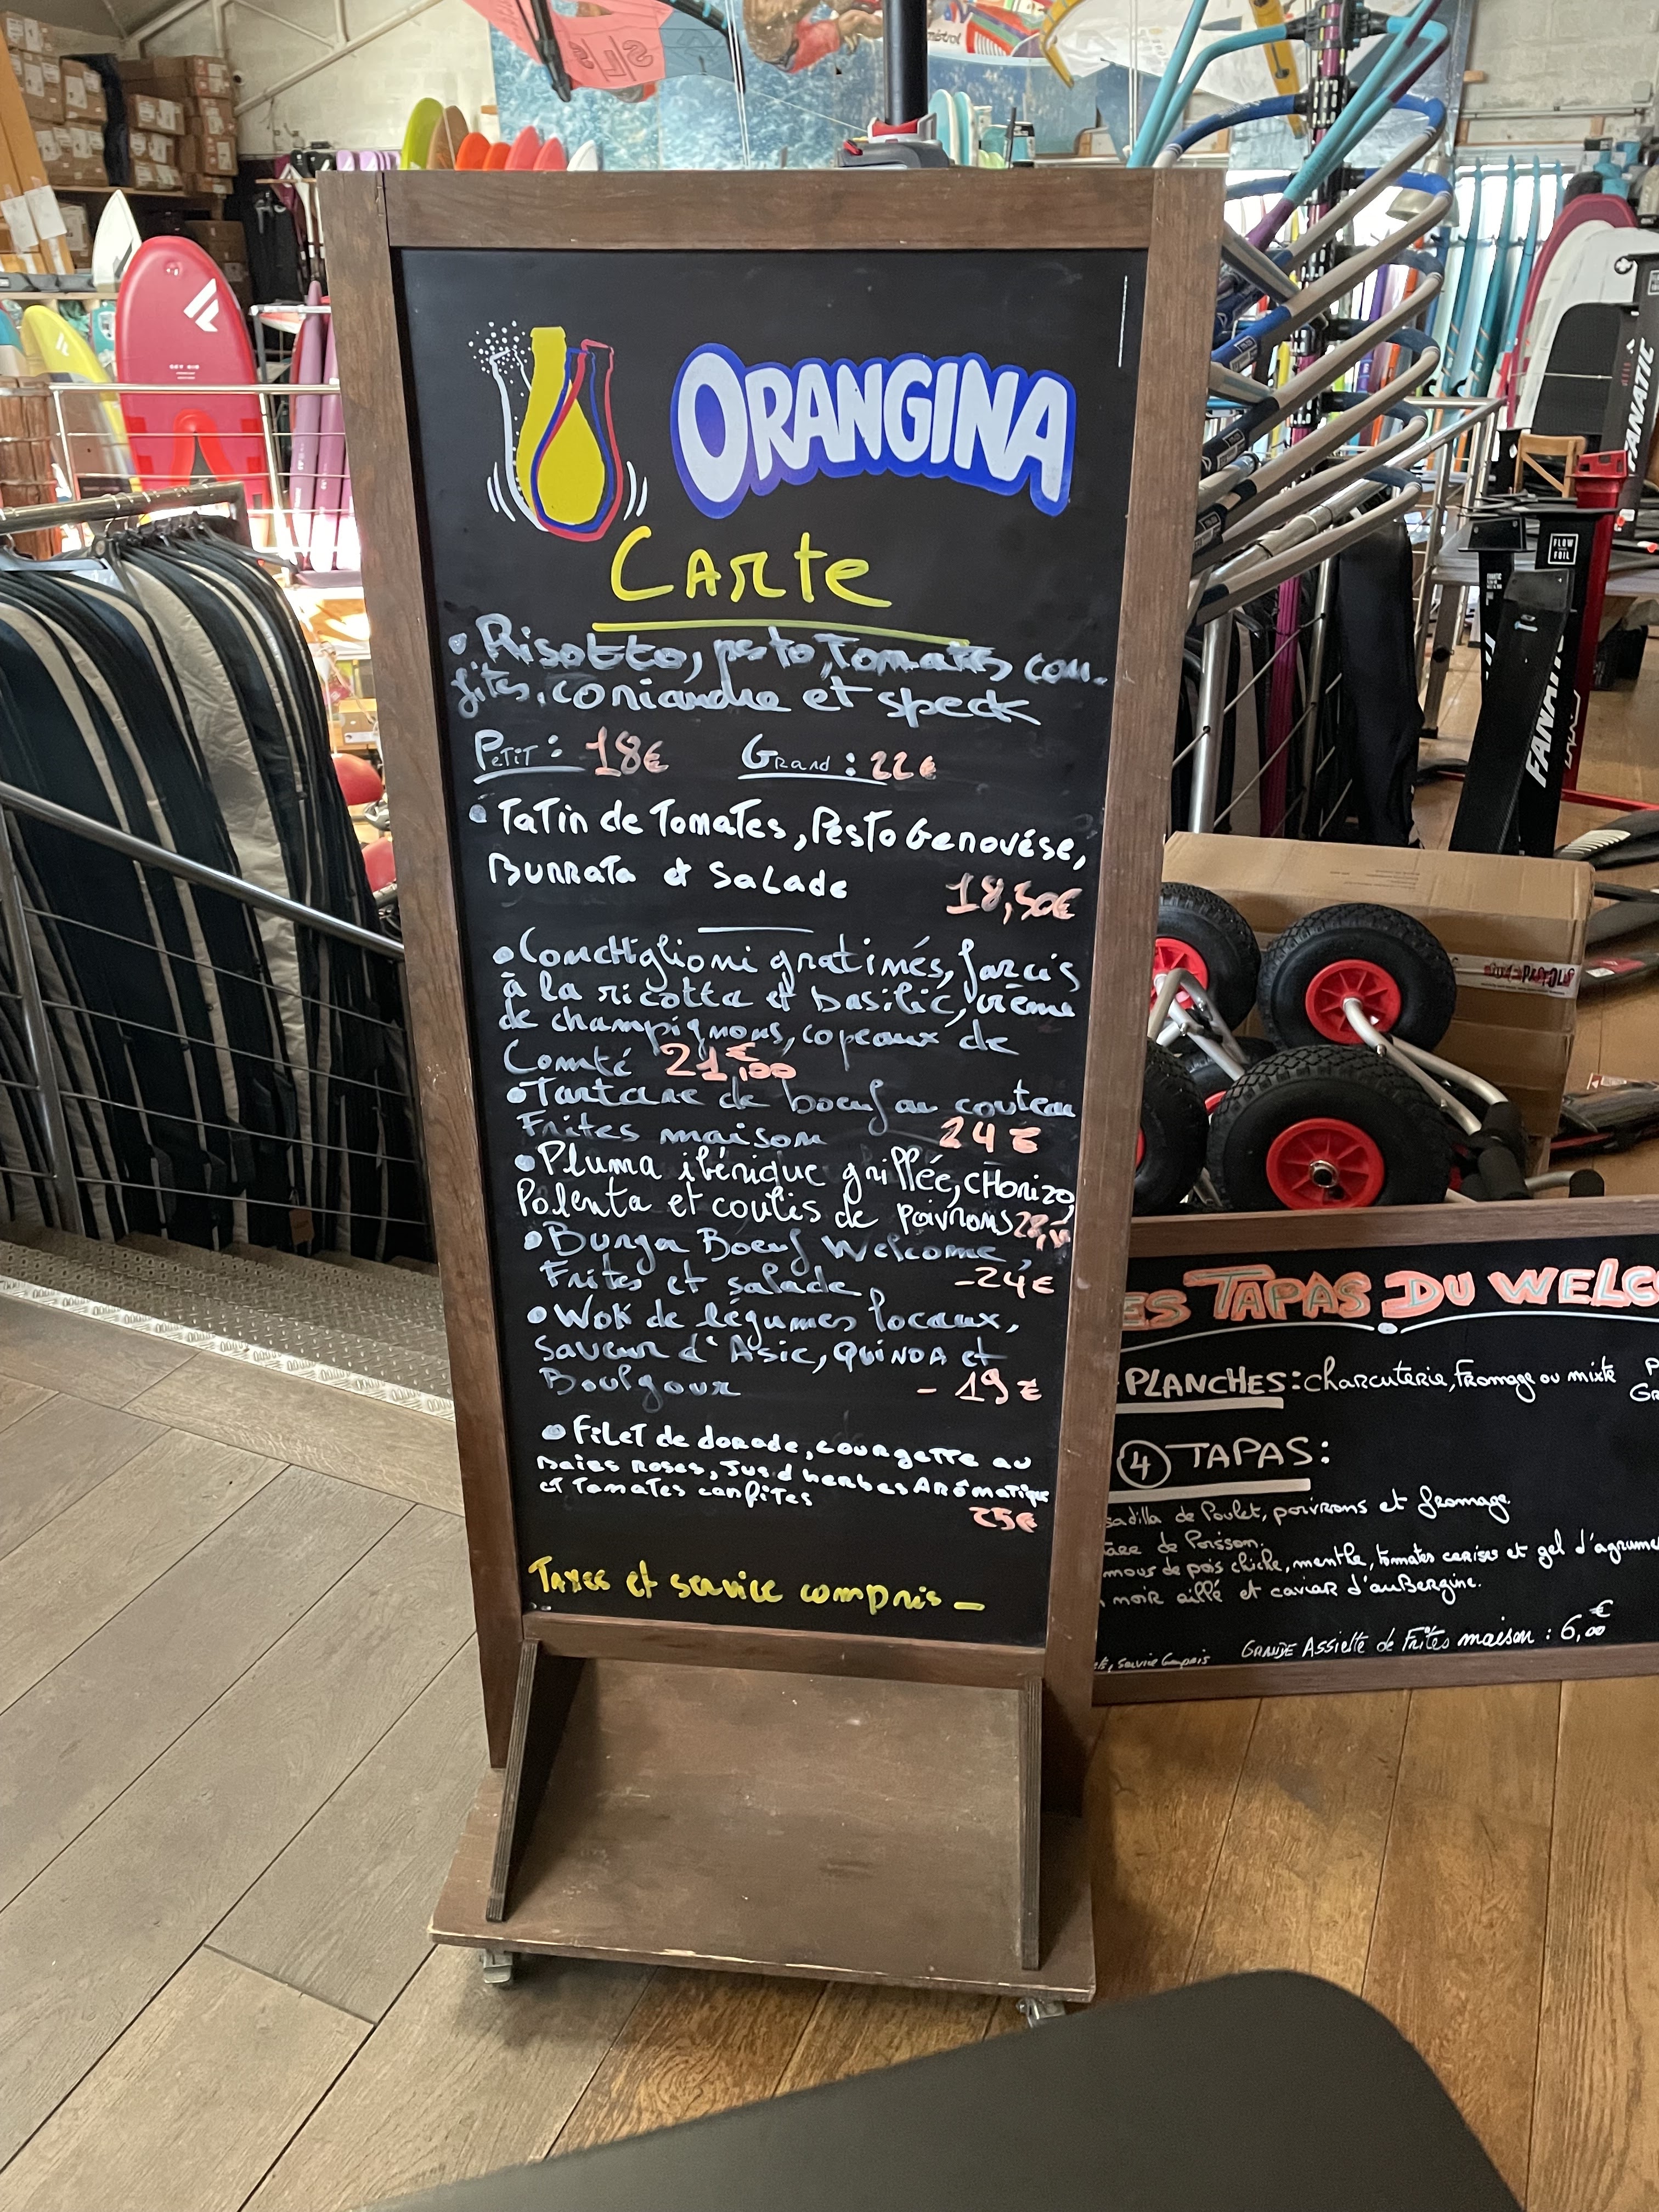 ORANGINA
Carte
• Risotto, pesto, Tomates con-
fites, coriandre et speck
Petit : 18€ Grand : 22€
• Tatin de Tomates, Pesto Genovése,
Burrata et Salade 18,50€
• Conchiglioni gratinés, farcis
à la ricotta et basilic, crème
de champignons, copeaux de
Comté 21,00€
• Tartare de boeuf au couteau
Frites maison 24€
• Pluma ibérique grillée, CHorizo,
Polenta et coulis de poivrons
• Burger Boeuf Welcome,
Frites et salade -24€
• Wok de légumes locaux,
Saveur d'Asie, Quinoa et
Boulgour - 19€
• Filet de dorade, courgette au
Baies Roses, Jus d'herbes Arômatique
et Tomates confites
25€
Taxes et service compris -
ES TAPAS DU WELCO
PLANCHES : charcuterie, Fromage ou mixte
4 TAPAS :
sadilla de Poulet, poivrons et fromage
de Poisson.
mous de pois chiche, menthe, tomates cerises et gel d'agrume
noir aillé et caviar d'auBergine.
GRANDE Assiette de Frites maison : 6,00€
Service Compris
FANATIC
FANATIC
FLOW
FOIL
SLS
mistral